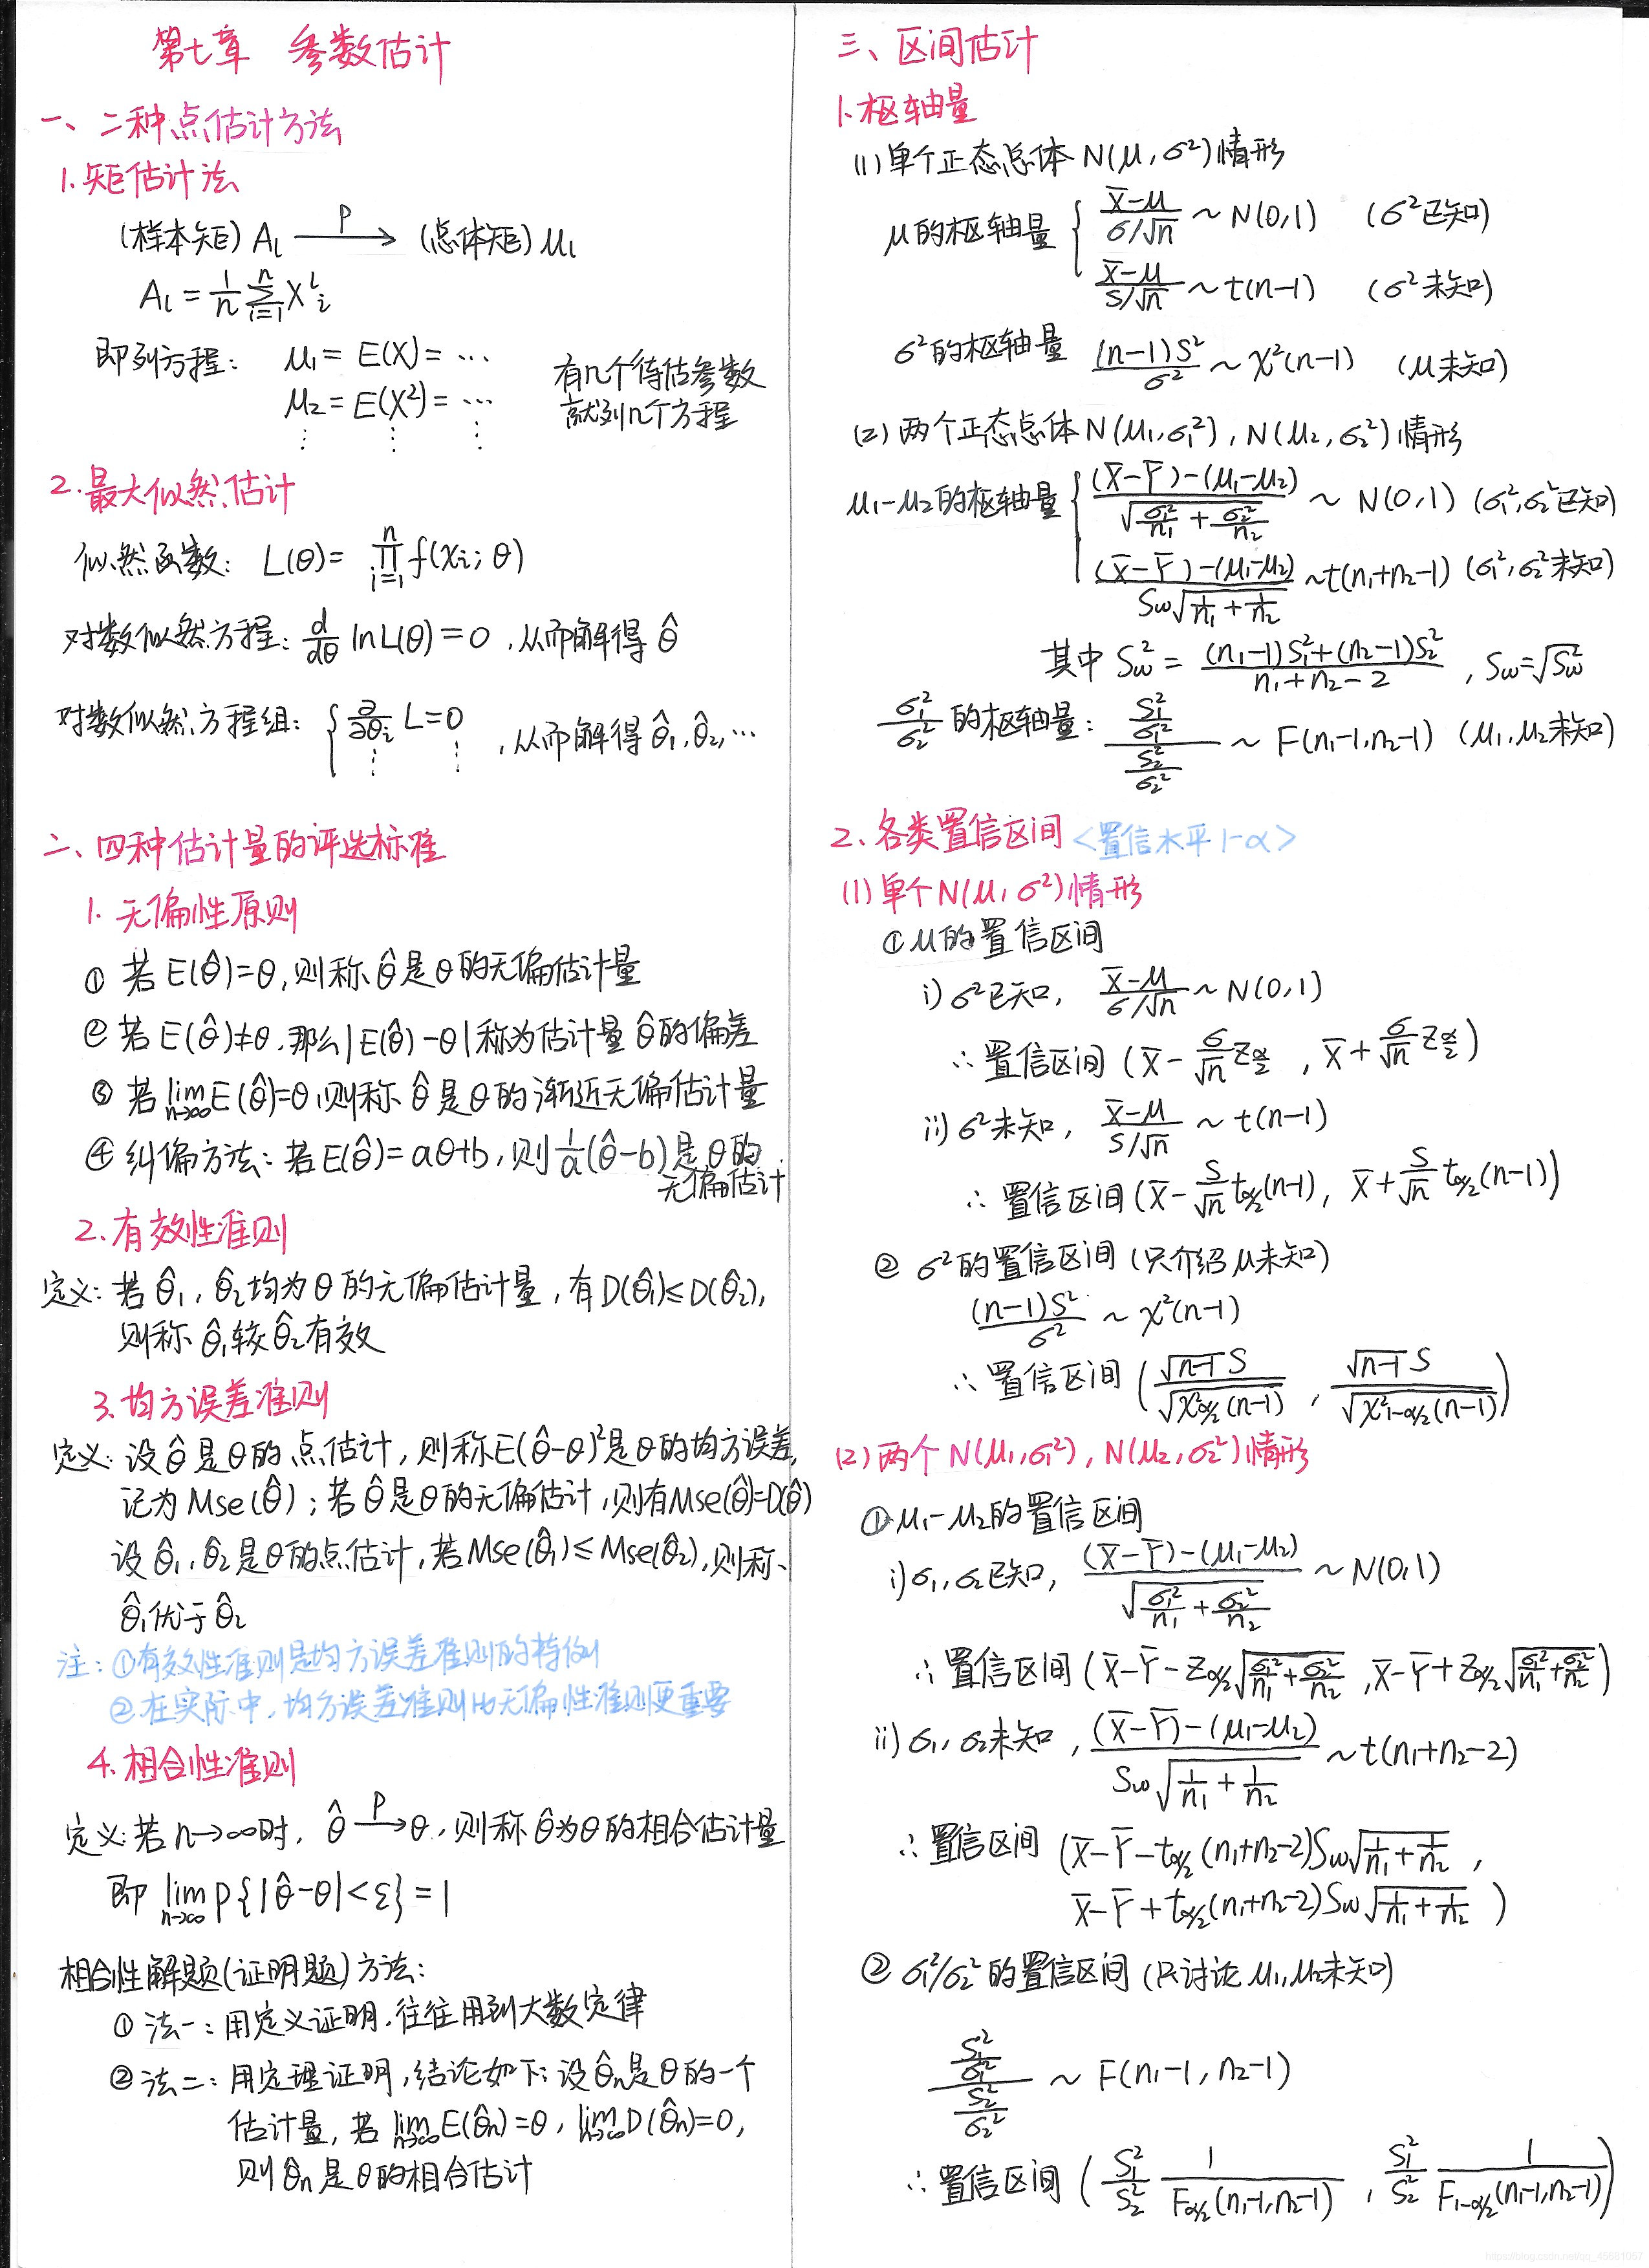 第七章 参数估计
一、二种点估计方法
1.矩估计法
(样本矩) A_l —P→ (总体矩) μ_l
A_l = 1/n ∑_{i=1}^{n} X_i^l
即列方程: μ₁ = E(X) = ⋯
μ₂ = E(X²) = ⋯
⋮ ⋮ ⋮
有几个待估参数
就列几个方程
2.最大似然估计
似然函数: L(θ) = ∏_{i=1}^{n} f(x_i; θ)
对数似然方程: d/dθ lnL(θ) = 0, 从而解得 θ̂
对数似然方程组: { ∂/∂θ_i L = 0 ⋮ ⋮ , 从而解得 θ̂₁, θ̂₂, ⋯
二、四种估计量的评选标准
1. 无偏性原则
① 若 E(θ̂)=θ, 则称 θ̂ 是 θ 的无偏估计量
② 若 E(θ̂)≠θ, 那么 |E(θ̂)-θ| 称为估计量 θ̂ 的偏差
③ 若 lim_{n→∞} E(θ̂)=θ, 则称 θ̂ 是 θ 的渐近无偏估计量
④ 纠偏方法: 若 E(θ̂)=aθ+b, 则 1/a(θ̂-b) 是 θ 的
无偏估计
2.有效性准则
定义: 若 θ̂₁, θ̂₂ 均为 θ 的无偏估计量, 有 D(θ̂₁)≤D(θ̂₂),
则称 θ̂₁ 较 θ̂₂ 有效
3.均方误差准则
定义: 设 θ̂ 是 θ 的点估计, 则称 E(θ̂-θ)² 是 θ 的均方误差,
记为 Mse(θ̂); 若 θ̂ 是 θ 的无偏估计, 则有 Mse(θ̂)=D(θ̂)
设 θ̂₁, θ̂₂ 是 θ 的点估计, 若 Mse(θ̂₁)≤Mse(θ̂₂), 则称
θ̂₁ 优于 θ̂₂
注: ①有效性准则是均方误差准则的特例
②在实际中, 均方误差准则比无偏性准则更重要
4.相合性准则
定义: 若 n→∞时, θ̂ —P→ θ, 则称 θ̂ 为 θ 的相合估计量
即 lim_{n→∞} P{|θ̂-θ|<ε} = 1
相合性解题(证明题)方法:
① 法一: 用定义证明, 往往用到大数定律
② 法二: 用定理证明, 结论如下: 设 θ̂n 是 θ 的一个
估计量, 若 lim_{n→∞} E(θ̂n)=θ, lim_{n→∞} D(θ̂n)=0,
则 θ̂n 是 θ 的相合估计
三、区间估计
1.枢轴量
(1) 单个正态总体 N(μ, σ²) 情形
μ的枢轴量 { (X̄-μ)/(σ/√n) ~ N(0,1) (σ²已知)
(X̄-μ)/(S/√n) ~ t(n-1) (σ²未知)
σ²的枢轴量 (n-1)S²/σ² ~ χ²(n-1) (μ未知)
(2) 两个正态总体 N(μ₁,σ₁²), N(μ₂,σ₂²) 情形
μ₁-μ₂的枢轴量 { ((X̄-Ȳ)-(μ₁-μ₂))/√(σ₁²/n₁ + σ₂²/n₂) ~ N(0,1) (σ₁²,σ₂²已知)
((X̄-Ȳ)-(μ₁-μ₂))/(Sω√(1/n₁ + 1/n₂)) ~ t(n₁+n₂-1) (σ₁²,σ₂²未知)
其中 Sω² = ((n₁-1)S₁²+(n₂-1)S₂²)/(n₁+n₂-2), Sω=√Sω²
σ₁²/σ₂² 的枢轴量: (S₁²/σ₁²)/(S₂²/σ₂²) ~ F(n₁-1,n₂-1) (μ₁,μ₂未知)
2.各类置信区间 <置信水平 1-α>
(1) 单个N(μ, σ²)情形
① μ的置信区间
i) σ²已知, (X̄-μ)/(σ/√n) ~ N(0,1)
∴ 置信区间 (X̄ - σ/√n Z_{α/2}, X̄ + σ/√n Z_{α/2})
ii) σ²未知, (X̄-μ)/(S/√n) ~ t(n-1)
∴ 置信区间 (X̄ - S/√n t_{α/2}(n-1), X̄ + S/√n t_{α/2}(n-1))
② σ²的置信区间 (只介绍 μ未知)
(n-1)S²/σ² ~ χ²(n-1)
∴ 置信区间 (√(n-1) S/√(χ²_{α/2}(n-1)), √(n-1) S/√(χ²_{1-α/2}(n-1)))
(2) 两个 N(μ₁,σ₁²), N(μ₂,σ₂²)情形
① μ₁-μ₂的置信区间
i) σ₁, σ₂已知, ((X̄-Ȳ)-(μ₁-μ₂))/√(σ₁²/n₁ + σ₂²/n₂) ~ N(0,1)
∴ 置信区间 (X̄-Ȳ-Z_{α/2}√(σ₁²/n₁+σ₂²/n₂), X̄-Ȳ+Z_{α/2}√(σ₁²/n₁+σ₂²/n₂))
ii) σ₁, σ₂未知, ((X̄-Ȳ)-(μ₁-μ₂))/(Sω√(1/n₁ + 1/n₂)) ~ t(n₁+n₂-2)
∴ 置信区间 (X̄-Ȳ-t_{α/2}(n₁+n₂-2)Sω√(1/n₁+1/n₂),
X̄-Ȳ+t_{α/2}(n₁+n₂-2)Sω√(1/n₁+1/n₂))
② σ₁²/σ₂² 的置信区间 (只讨论 μ₁,μ₂未知)
(S₁²/σ₁²)/(S₂²/σ₂²) ~ F(n₁-1, n₂-1)
∴ 置信区间 (S₁²/S₂² 1/F_{α/2}(n₁-1,n₂-1), S₁²/S₂² 1/F_{1-α/2}(n₁-1,n₂-1))